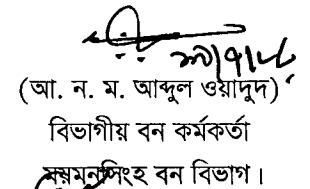 (আ. ন. ম. আব্দুল ওয়াদুদ)
বিভাগীয় বন কর্মকর্তা
ময়মনসিংহ বন বিভাগ।